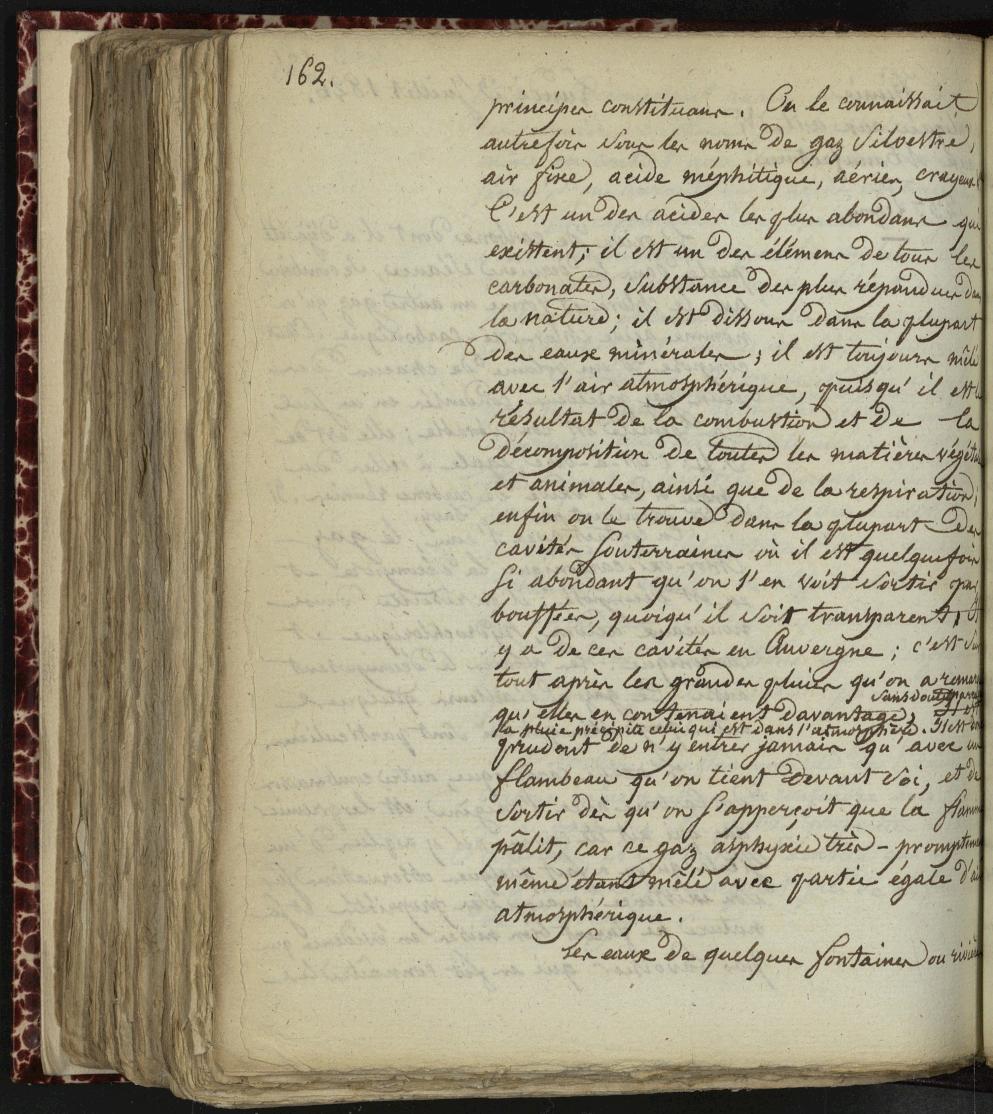 162.
principes constituans. On le connaissait
autrefois sous les noms de gaz silvestre,
air fixe, acide méphitique, aérien, crayeux.
C'est un des acides les plus abondans qui
existent; il est un des élémens de tous les
carbonates, substance des plus répandues dans
la nature; il est dissous dans la plupart
des eaux minérales; il est toujours mêlé
avec l'air atmosphérique, puisqu'il est le
résultat de la combustion et de la
décomposition de toutes les matières végéta
et animales, ainsi que de la respiration;
enfin on le trouve dans la plupart des
cavités souterraines où il est quelquefois
si abondant qu'on l'en voit sortir par
bouffées, quoiqu'il soit transparent. Il
y a de ces cavités en Auvergne; c'est sur
tout après les grandes pluies qu'on a remar
sans doute parceq
qu'elles en contenaient davantage;
la pluie précipite celui qui est dans l'atmosphère. Il est
prudent de n'y entrer jamais qu'avec un
flambeau qu'on tient devant soi, et de
sortir dès qu'on s'apperçoit que la flamme
pâlit, car ce gaz asphyxie très-promptemen
même étant mêlé avec partie égale d'air
atmosphérique.
Les eaux de quelques fontaines ou rivière